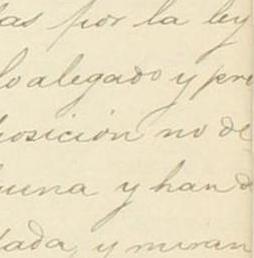 las por la ley
lo alegado y pre
posición no de
buena y han d
tada, y miran